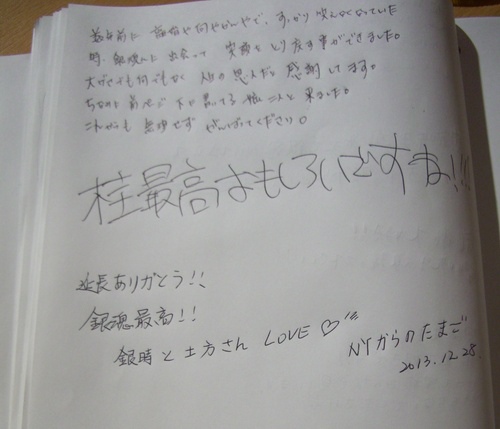 何やかんやで、すっかり笑えなくなっていた
時、銀魂に出会って 笑顔をとり戻す事ができました。
大げさでも何でもなく 恩人だと 感謝してます。
ちなみに 娘 二人と 来ました。
これからも 無理せず がんばってください。
桂最高おもしろいですね!!!
延長ありがとう!!
銀魂最高!!
銀時と土方さん LOVE♡
NYからのたまご
2013.12.28